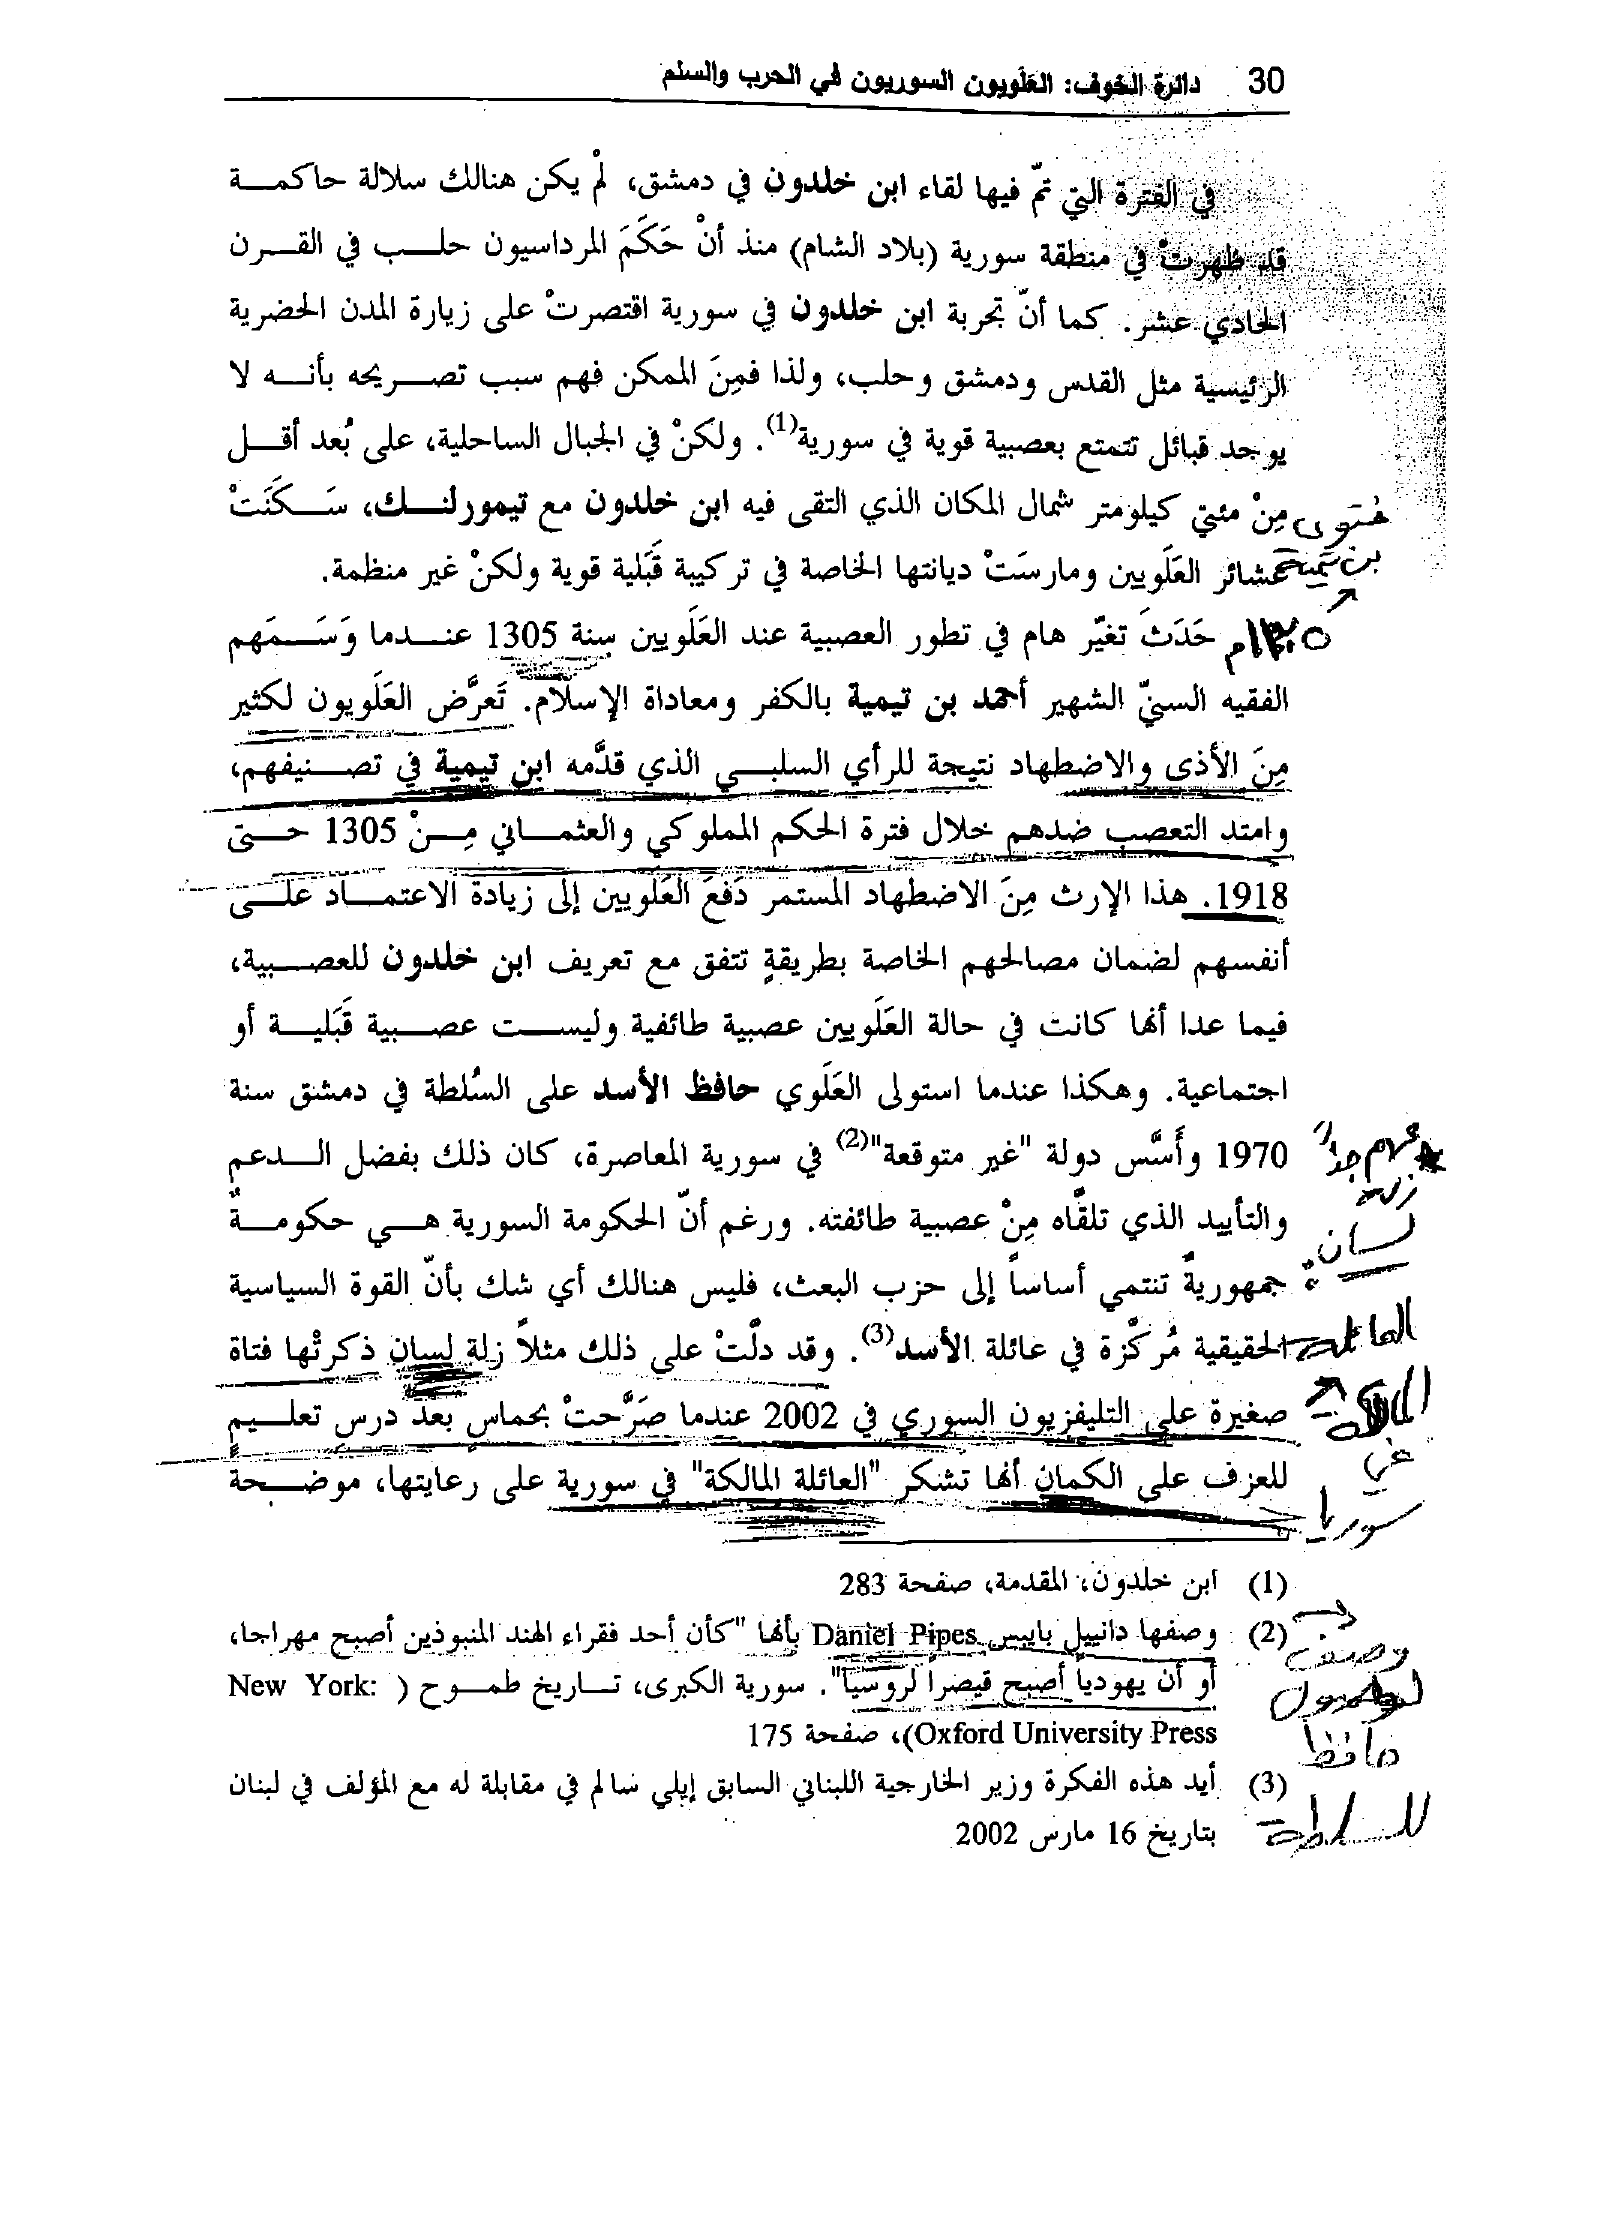 30 دائرة الخوف: العَلَويون السوريون في الحرب والسلم
في الفترة التي تمّ فيها لقاء ابن خلدون في دمشق، لمْ يكن هنالك سلالة حاكمة
قد ظهرتْ في منطقة سورية (بلاد الشام) منذ أنْ حَكَمَ المرداسيون حلب في القرن
الحادي عشر. كما أنّ تجربة ابن خلدون في سورية اقتصرتْ على زيارة المدن الحضرية
الرئيسية مثل القدس ودمشق وحلب، ولذا فمِنَ الممكن فهم سبب تصريحه بأنه لا
يوجد قبائل تتمتع بعصبية قوية في سورية(1). ولكنْ في الجبال الساحلية، على بُعد أقل
مِنْ مئتي كيلومتر شمال المكان الذي التقى فيه ابن خلدون مع تيمورلنك، سَكَنَتْ
فتوى
عشائر العَلَويين ومارسَتْ ديانتها الخاصة في تركيبة قَبَلية قوية ولكنْ غير منظمة.
بن تيمية
حَدَثَ تغيّر هام في تطور العصبية عند العَلَويين سنة 1305 عندما وَسَمَهم
الفقيه السنيّ الشهير أحمد بن تيمية بالكفر ومعاداة الإسلام. تَعرَّض العَلَويون لكثير
مِنَ الأذى والاضطهاد نتيجة للرأي السلبي الذي قدَّمه ابن تيمية في تصنيفهم،
وامتد التعصب ضدهم خلال فترة الحكم المملوكي والعثماني مِنْ 1305 حتى
1918. هذا الإرث مِنَ الاضطهاد المستمر دَفعَ العَلَويين إلى زيادة الاعتماد على
أنفسهم لضمان مصالحهم الخاصة بطريقةٍ تتفق مع تعريف ابن خلدون للعصبية،
فيما عدا أنها كانت في حالة العَلَويين عصبية طائفية وليست عصبية قَبَلية أو
اجتماعية. وهكذا عندما استولى العَلَوي حافظ الأسد على السُلطة في دمشق سنة
1970 وأَسَّس دولة "غير متوقعة"(2) في سورية المعاصرة، كان ذلك بفضل الدعم
مهم جداً
زلة
والتأييد الذي تلقَّاه مِنْ عصبية طائفته. ورغم أنّ الحكومة السورية هي حكومةٌ
لسان
جمهوريةٌ تنتمي أساساً إلى حزب البعث، فليس هنالك أي شك بأنّ القوة السياسية
الحقيقية مُركّزة في عائلة الأسد(3). وقد دلّتْ على ذلك مثلاً زلة لسان ذكرتْها فتاة
العائلة
صغيرة على التليفزيون السوري في 2002 عندما صَرَّحتْ بحماسٍ بعد درسِ تعليمٍ
المالكة
في
للعزف على الكمان أنها تشكر "العائلة المالكة" في سورية على رعايتها، موضحة
سوريا
(1) ابن خلدون، المقدمة، صفحة 283
(2) وصفها دانييل بايبس Daniel Pipes بأنها "كأن أحد فقراء الهند المنبوذين أصبح مهراجا،
وصف
أو أن يهودياً أصبح قيصراً لروسيا". سورية الكبرى، تاريخ طموح (New York:
لوصول
Oxford University Press)، صفحة 175
حافظ
(3) أيد هذه الفكرة وزير الخارجية اللبناني السابق إيلي سالم في مقابلة له مع المؤلف في لبنان
للسلطة
بتاريخ 16 مارس 2002